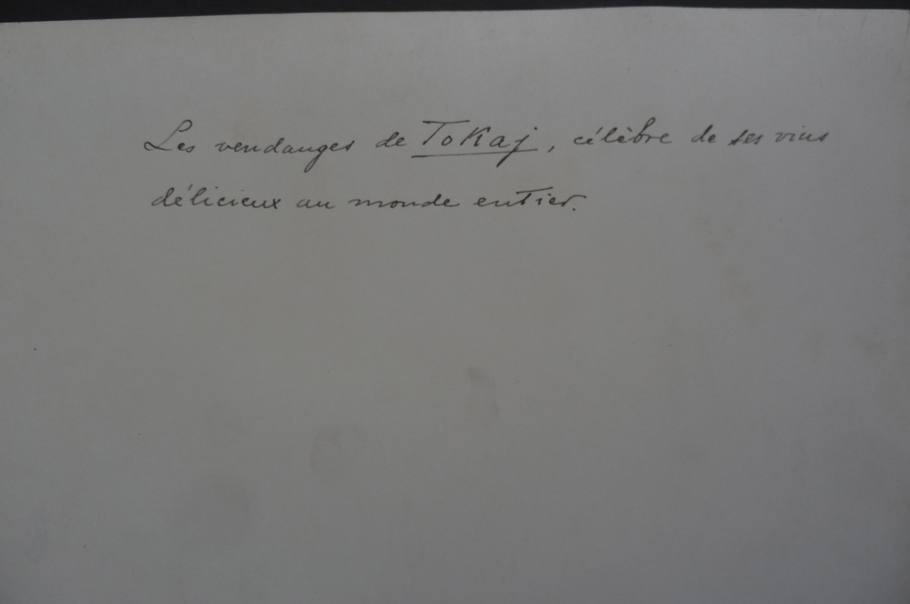 Les vendanges de Tokaj, célèbre de ses vins
délicieux au monde entier.